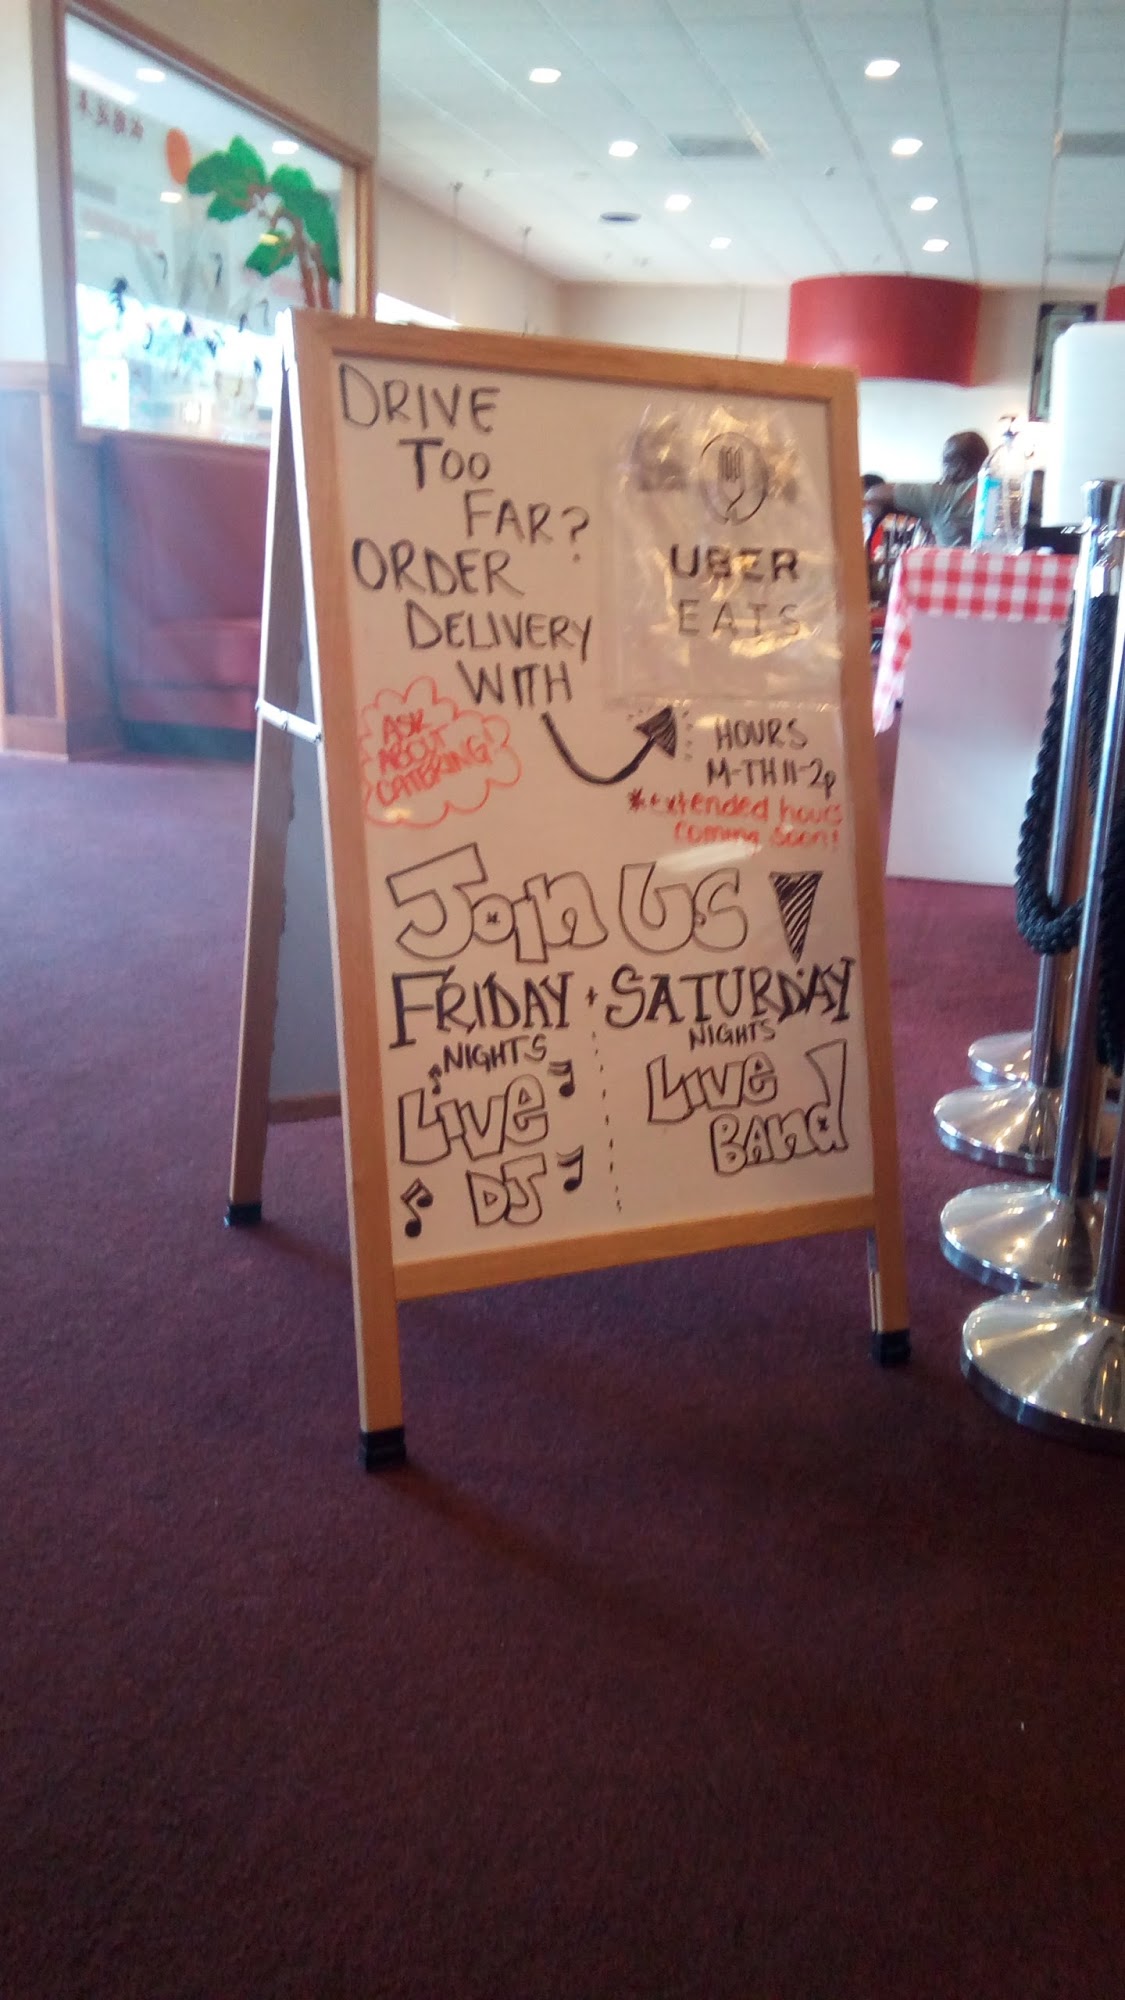 DRIVE
TOO
FAR?
ORDER
DELIVERY
WITH
UBER
EATS
ASK
ABOUT
CATERING!
HOURS
M-TH 11-2p
*extended hours
coming soon!
Join US
FRIDAY + SATURDAY
NIGHTS
LIVE
DJ
NIGHTS
LIVE
BAND